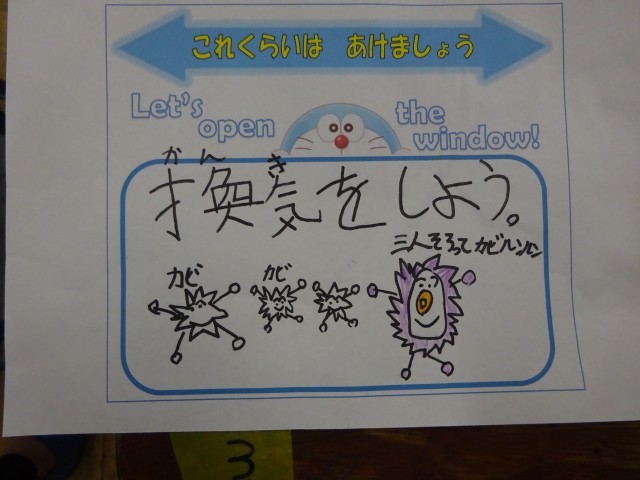 これくらいは あけましょう
Let's open the window!
かんき
換気をしよう。
三人そろってカビルンルン
カビ カビ
3